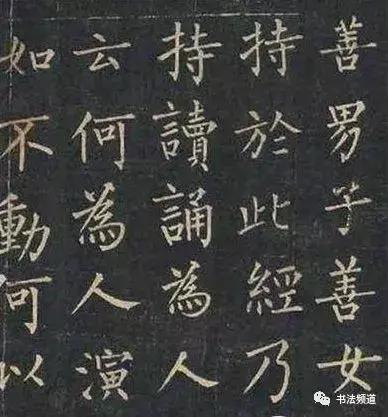 善男子善女
持於此經乃
持讀誦為人
云何為人演
如不動何以
书法频道